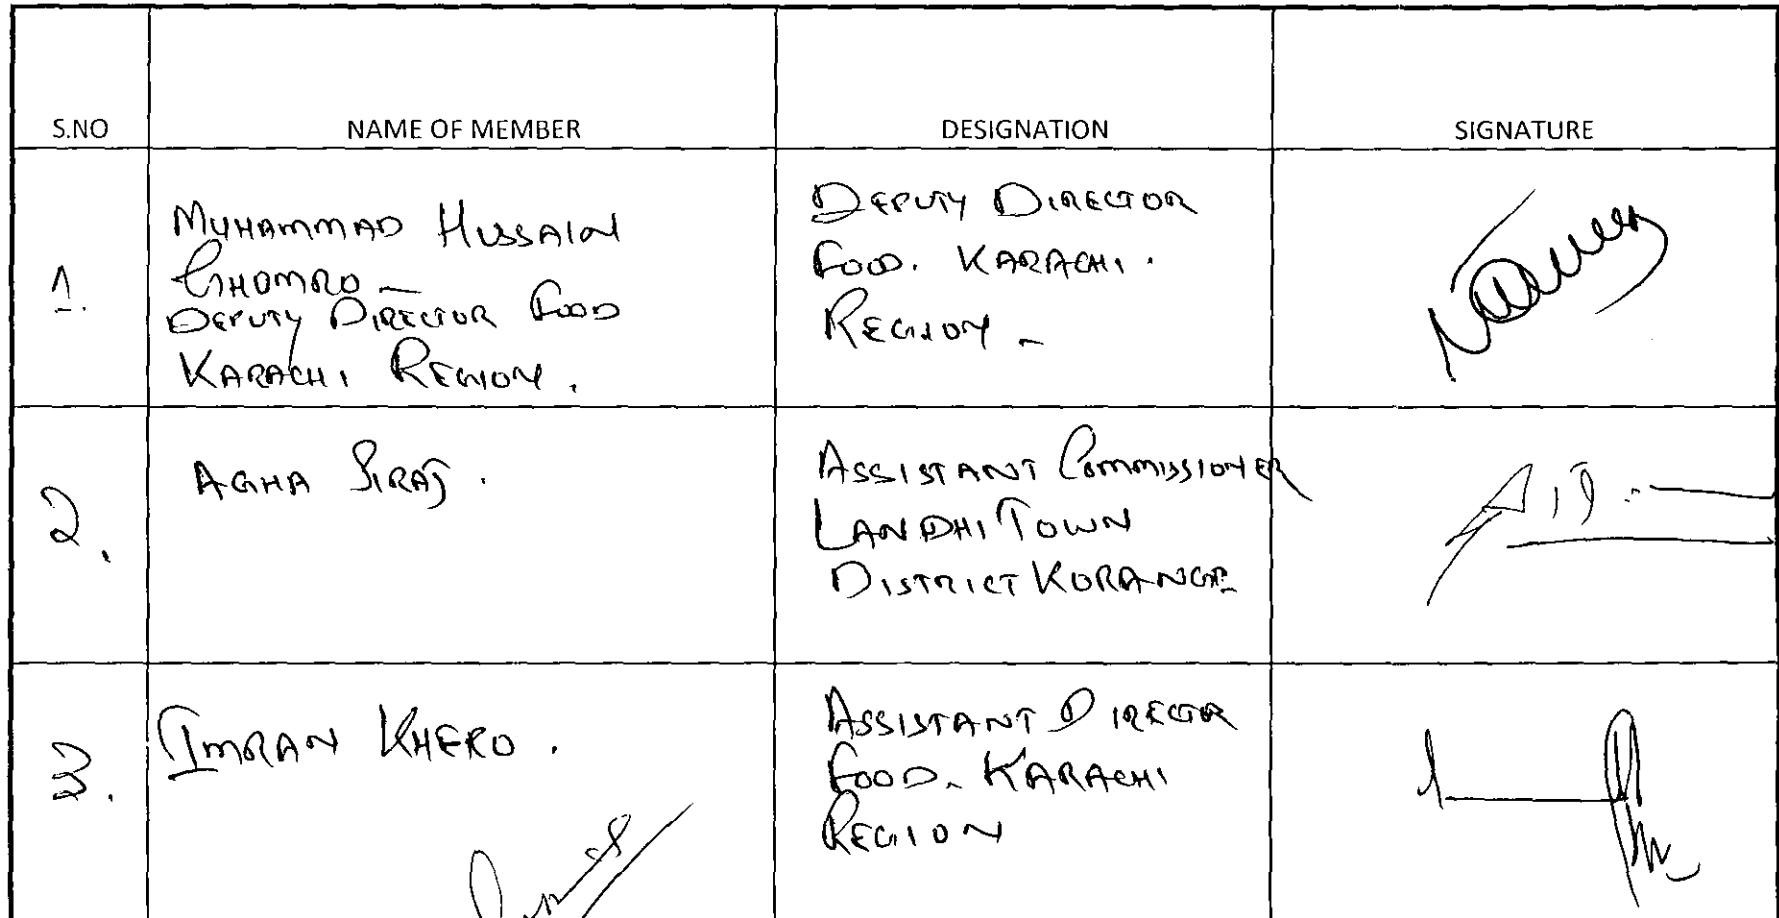 S.NO NAME OF MEMBER DESIGNATION SIGNATURE
1.
MUHAMMAD HUSSAIN
GHOMRO -
DEPUTY DIRECTOR FOOD
KARACHI REGION.
DEPUTY DIRECTOR
FOOD. KARACHI.
REGION -
2.
AGHA SIRAJ.
ASSISTANT COMMISSIONER
LANDHI TOWN
DISTRICT KORANGI-
3.
IMRAN KHERO.
ASSISTANT DIRECTOR
FOOD. KARACHI
REGION